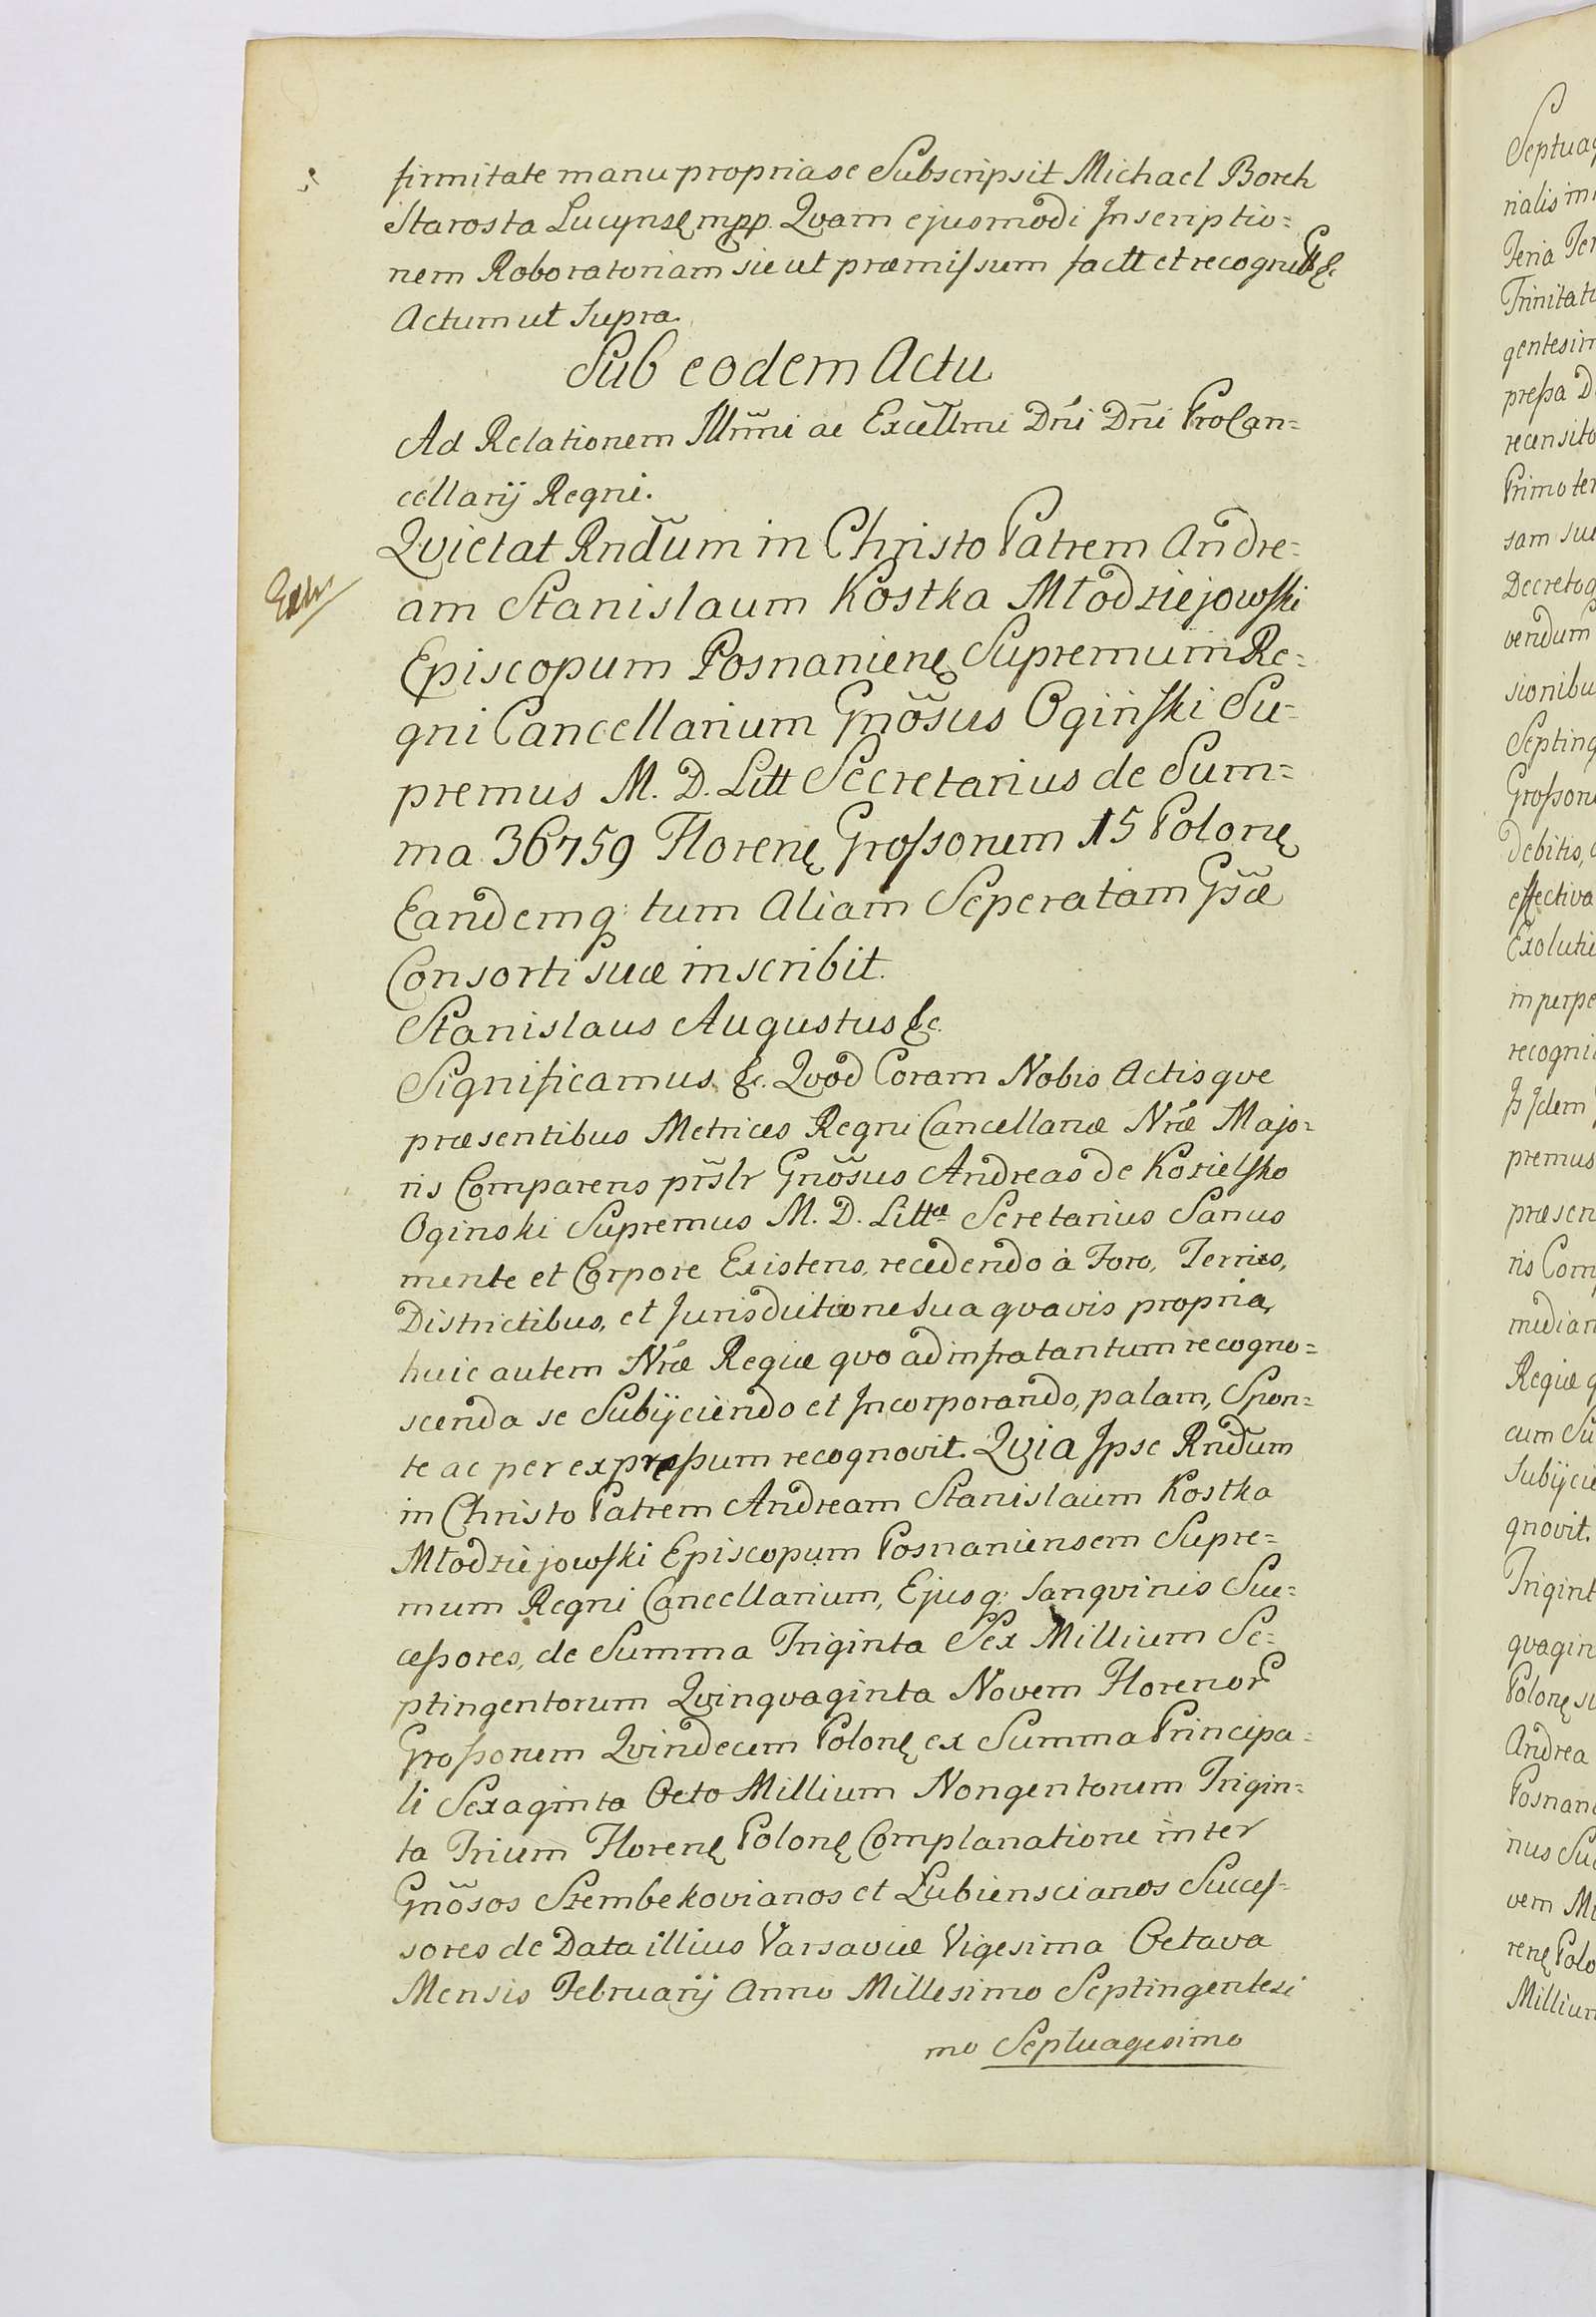 firmitate manu propria se Subscripsit Michael Borch
Starosta Lucynsę mpp. Qvam ejusmodi Inscriptio=
nem Roboratoriam sicut præmissum factt et recognitt &c
Actum ut Supra.
Sub eodem Actu
Ad Relationem Illmi ac Excellmi Dni Dni ProCan=
cellarij Regni.
Qvietat Rndum in Christo Patrem Andre=
am Stanislaum Kostka Młodziejowski
Episcopum Posnanienę Supremum Re=
gni Cancellarium Gnosus Oginski Su=
premus M. D. Litt Secretarius de Sum=
ma 36759 Florenę Grossorum 15 Polonę
Eandemq: tum Aliam Seperatam Gsæ
Consorti suæ inscribit.
Stanislaus Augustus &c.
Significamus &c. Qvod Coram Nobis Actisqve
præsentibus Metrices Regni Cancellariæ Nræ Majo=
ris Comparens prslr Gnosus Andreas de Kozielsko
Oginski Supremus M. D. Littæ Scretarius Sanus
mente et Corpore Existens, recedendo à Foro, Terris,
Districtibus, et Jurisdictione sua qvavis propria,
huic autem Nræ Regiæ qvo ad infra tantum recogno=
scenda se Subijciendo et Incorporando, palam, Spon=
te ac per expressum recognovit. Qvia Ipse Rndum
in Christo Patrem Andream Stanislaum Kostka
Młodziejowski Episcopum Posnaniensem Supre=
mum Regni Cancellarium, Ejusq: Sangvinis Suc=
cessores, de Summa Triginta Sex Millium Se=
ptingentorum Qvinqvaginta Novem Florenor
Grossorum Qvindecem Polonę ex Summa Principa=
li Sexaginta Octo Millium Nongentorum Trigin=
ta Trium Florenę Polonę Complanatione inter
Gnosos Szembekovianos et Łubienscianos Succes=
sores de Data illius Varsaviæ Vigesima Octava
Mensis Februarij Anno Millesimo Septingentesi
mo Septuagesimo